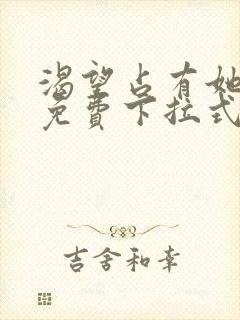 渴望占有她
免費下拉式
吉舍和幸